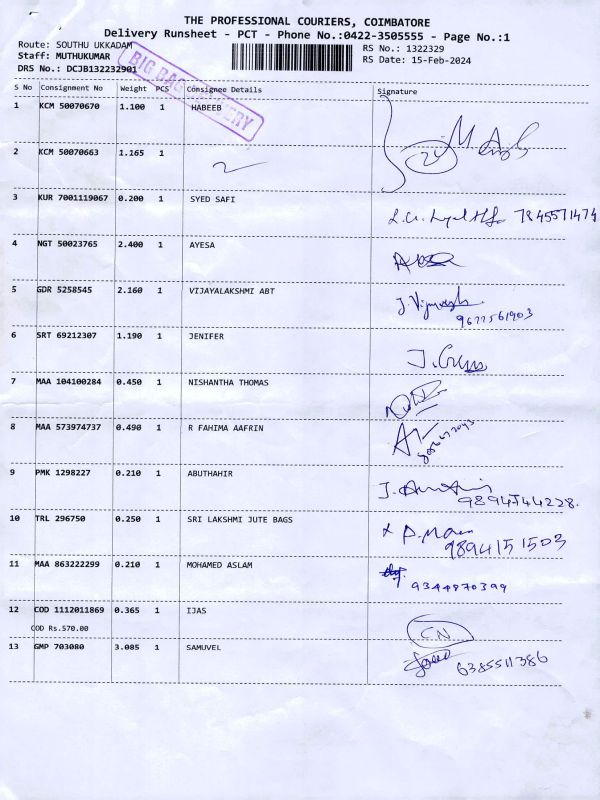 THE PROFESSIONAL COURIERS, COIMBATORE
Delivery Runsheet - PCT - Phone No.:0422-3505555 - Page No.:1
Route: SOUTHU UKKADAM
RS No.: 1322329
Staff: MUTHUKUMAR
RS Date: 15-Feb-2024
DRS No.: DCJB132232901
BIG BAG DELIVERY
S No Consignment No Weight PCS Consignee Details Signature
1 KCM 50070670 1.100 1 HABEEB
2 KCM 50070663 1.165 1
3 KUR 7001119067 0.200 1 SYED SAFI 7845571474
4 NGT 50023765 2.400 1 AYESA
5 GDR 5258545 2.160 1 VIJAYALAKSHMI ABT
9677561903
6 SRT 69212307 1.190 1 JENIFER
7 MAA 104100284 0.450 1 NISHANTHA THOMAS
8 MAA 573974737 0.490 1 R FAHIMA AAFRIN
9 PMK 1298227 0.210 1 ABUTHAHIR
9894544228.
10 TRL 296750 0.250 1 SRI LAKSHMI JUTE BAGS
9894151503
11 MAA 863222299 0.210 1 MOHAMED ASLAM
9344970399
12 COD 1112011869 0.365 1 IJAS
COD Rs.570.00
CN
13 GMP 703080 3.085 1 SAMUVEL
6385511386